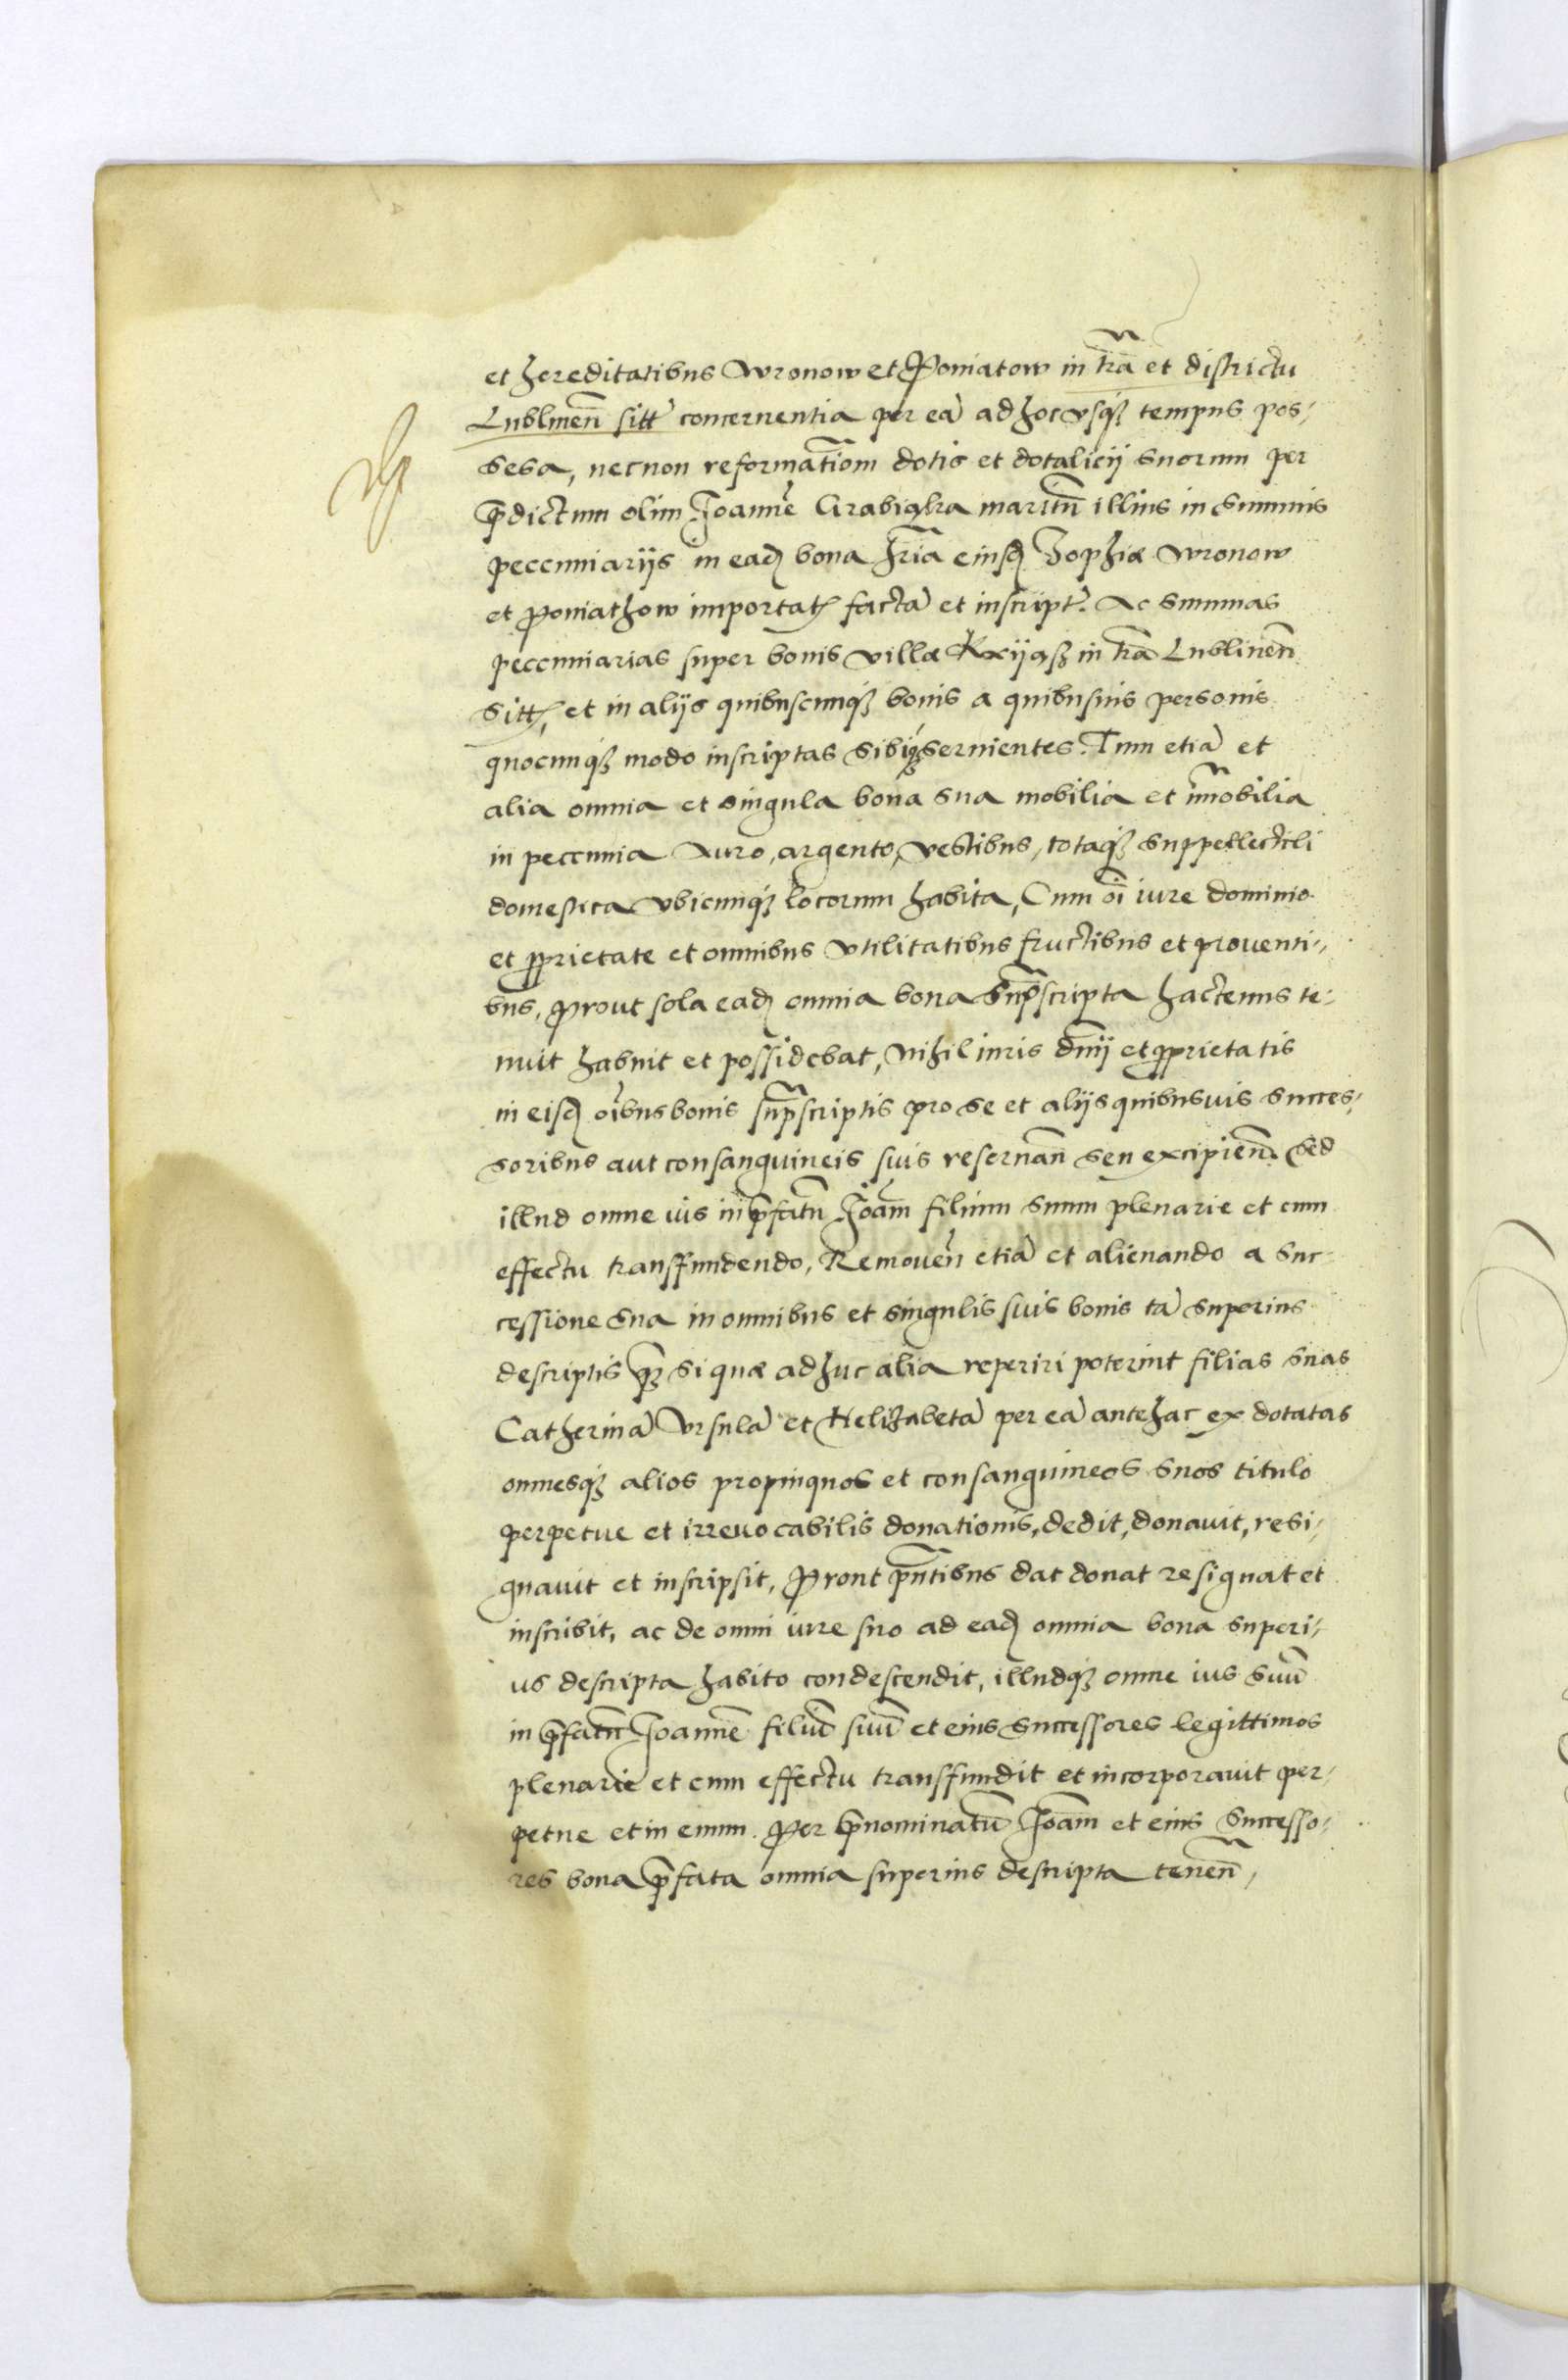 et hereditatibus Wronow et Poniatow in tra͞ et districtu
Lublinen͞ sitt͞ concernentia per ea͞ ad hoc usq₃ tempus pos-
sesa, necnon reformat͞iom dotis et dotalicij suorum per
p͞dictum olim Joanne͞ Grabiąka maritu͞ illius in summis
pecuniarijs in eadꝫ bona hr͞ia eiusdꝫ Zophiæ Wronow
et Poniathow importatꝫ facta͞ et inscript͞. Ac summas
pecuniarias super bonis villæ Kxijąß in tra͞ Lublinen͞
sittꝫ, et in alijs quibuscunq₃ bonis a quibusuis personis
quocunq₃ modo inscriptas sibiq₃ seruientes. Tum etia͞ et
alia omnia et singula bona sua mobilia et im͞obilia
in pecunia Auro, argento, vestibus, totaq₃ suppellectili
domestica ubicunq₃ locorum habita, Cum oi͞ iure dominio
et ꝓprietate et omnibus utilitatibus fructibus et proventi-
bus, Prout sola eadꝫ omnia bona sup͞scripta hactenus te-
nuit habuit et possidebat, Nihil iuris dn͞ij et ꝓprietatis
in eisdꝫ oi͞bus bonis sup͞scriptis pro se et alijs quibusuis succes-
soribus aut consanguineis suis reseruan͞ seu excipien͞. Sed
illud omne ius in p͞fatu͞ Joa͞m filium suum plenarie et cum
effectu transfundendo, Remouen͞ etia͞ et alienando a suc-
cessione sua in omnibus et singulis suis bonis ta͞ superius
descriptis q͞ꝫ si quæ adhuc alia reperiri poterint filias suas
Catherina͞ Ursula͞ et Helizabeta͞ per ea͞ antehac ex dotatas
omnesq₃ alios propinquos et consanguineos suos titulo
perpetue et irreuocabilis donationis, dedit, donauit, resi-
gnauit et inscripsit, Prout p͞ntibus dat donat resignat et
inscribit, ac de omni iure suo ad eadꝫ omnia bona superi-
us descripta habito condescendit, illudq₃ omne ius suu͞
in p͞fatu͞ Joanne͞ filiu͞ suu͞ et eius successores legittimos
plenarie et cum effectu transfundit et incorporauit per-
petue et in euum. Per p͞nominatu͞ Joa͞m et eius successo-
res bona p͞fata omnia superius descripta tenen͞,